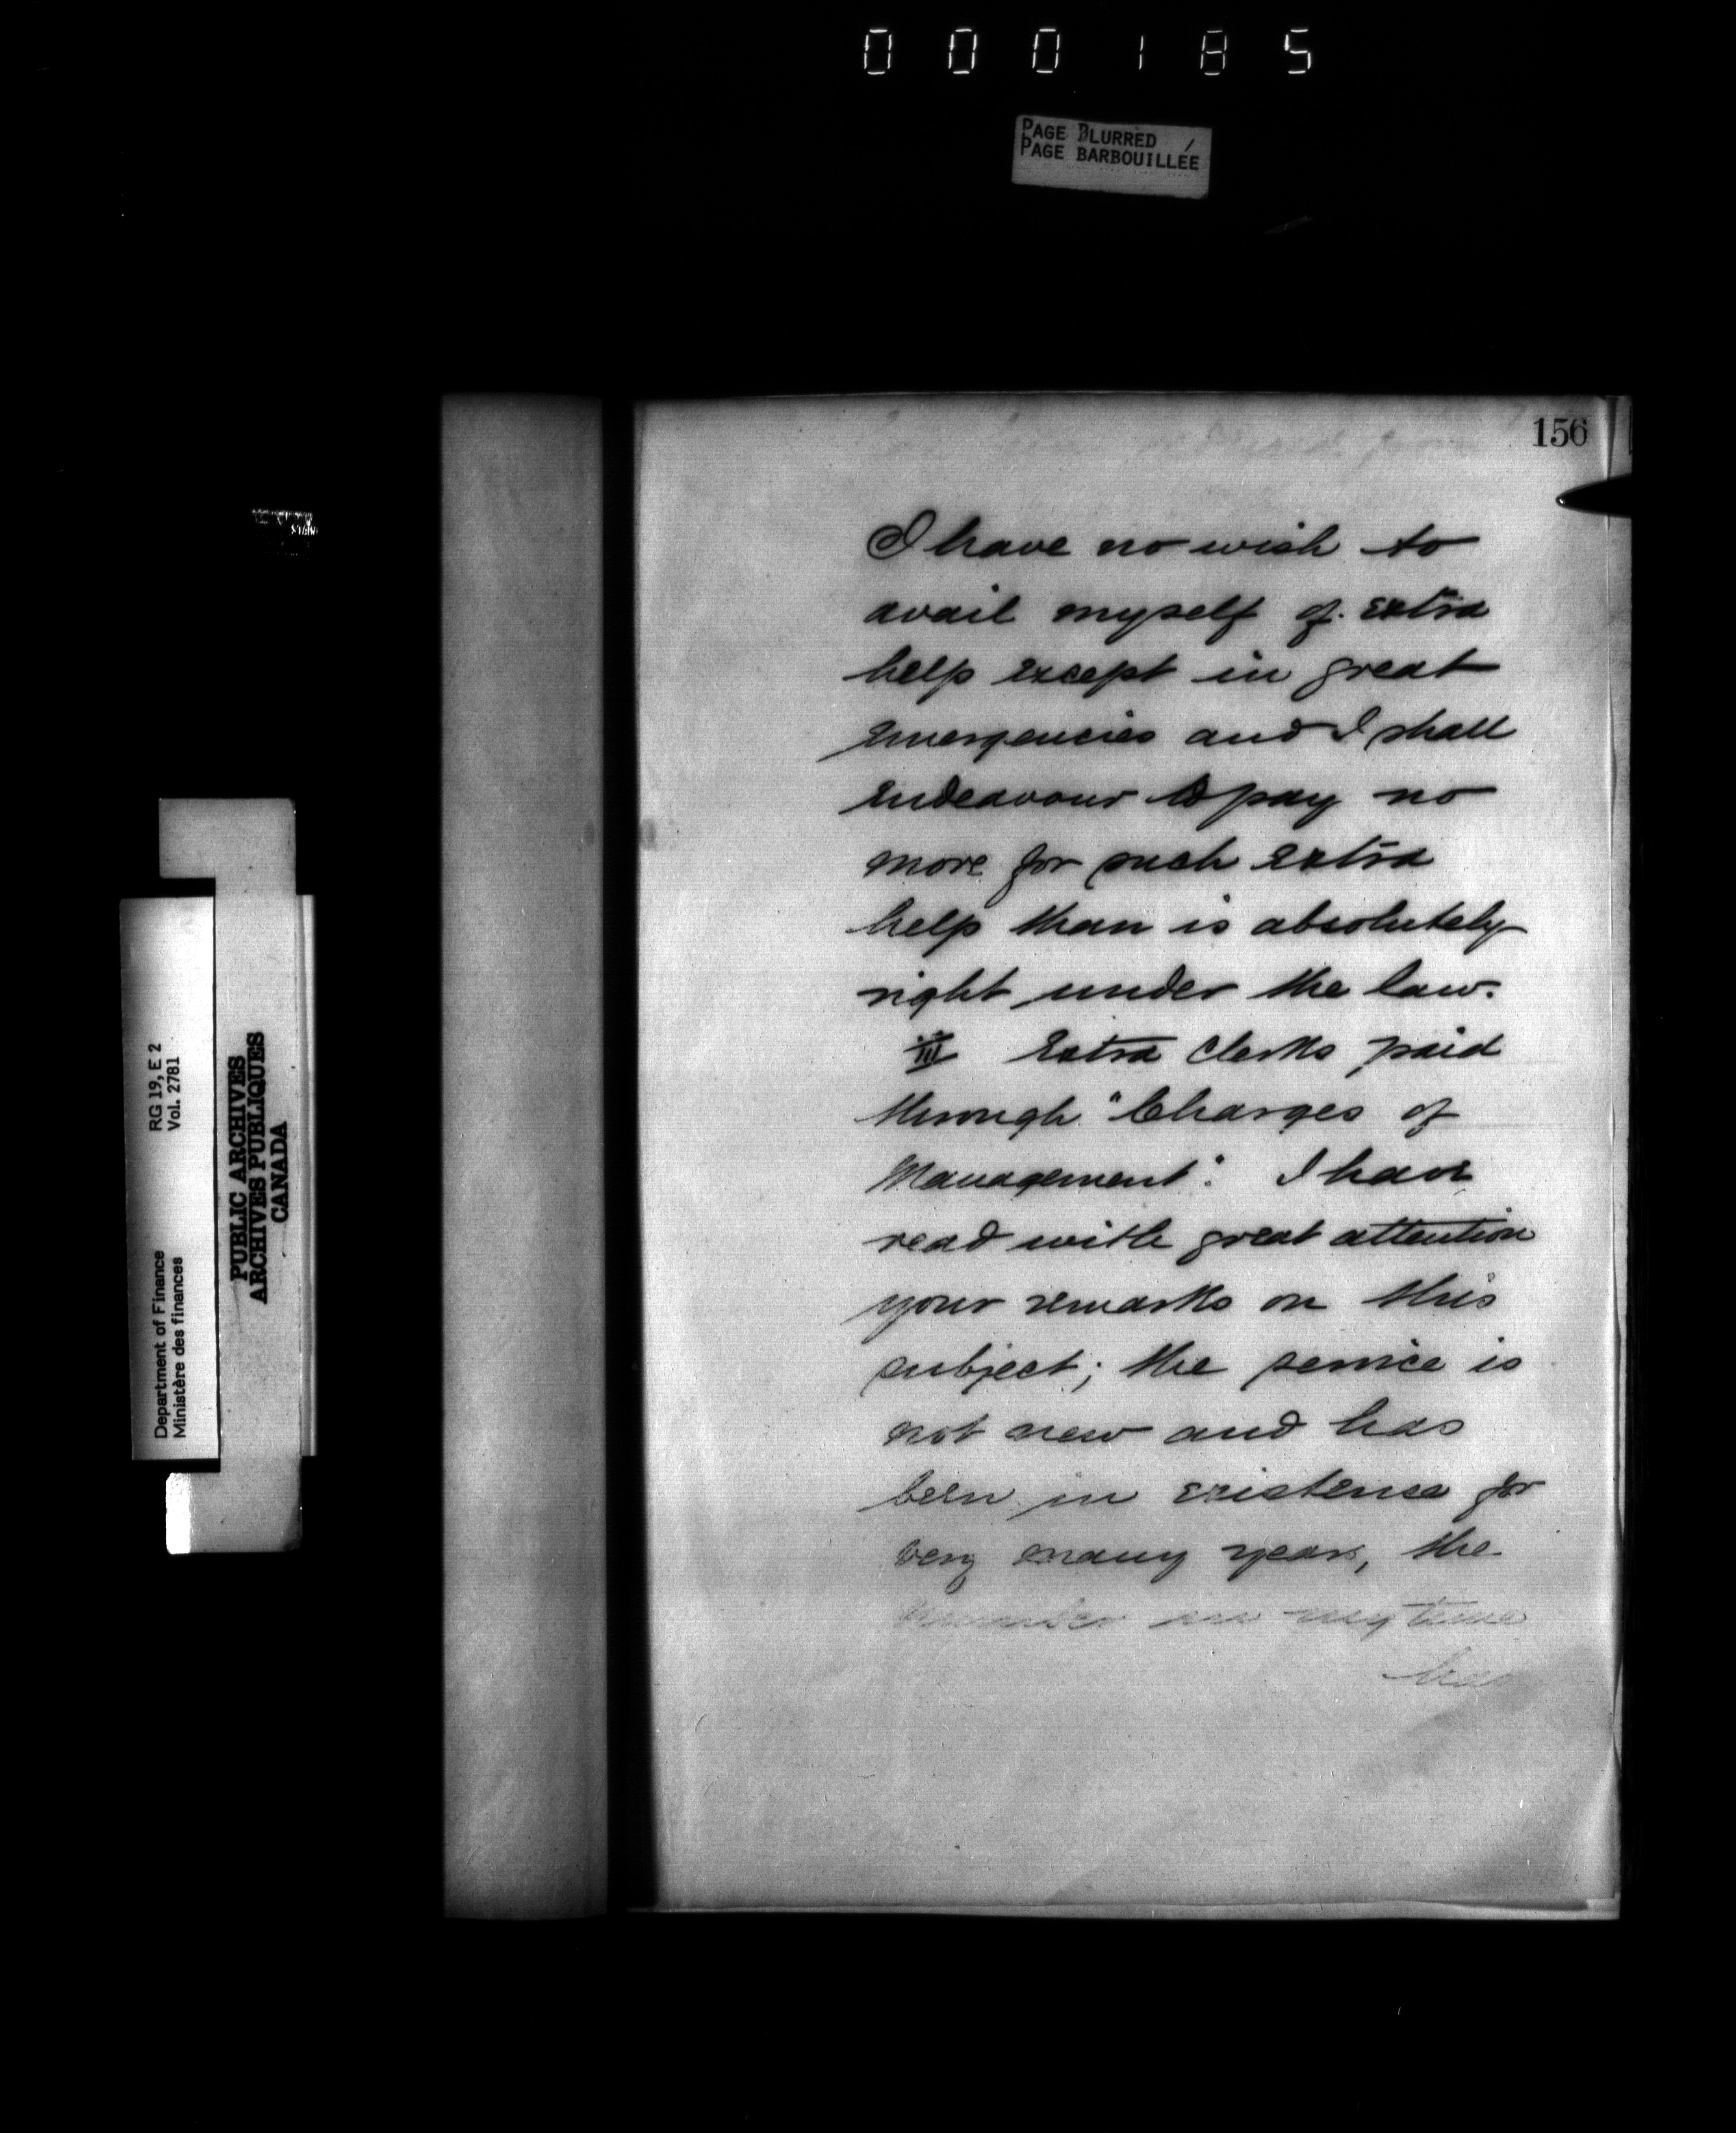 000185
PAGE BLURRED /
PAGE BARBOUILLEE
156
I have no wish to
avail myself of extra
help except in great
emergencies and I shall
endeavour to pay no
more for such extra
help than is absolutely
right under the law.
III Extra Clerks paid
through "Charges of
Management". I have
read with great attention
your remarks on this
subject; the service is
not new and has
been in existence for
very many years, the
number in my time
has
RG 19, E 2
Vol. 2781
Department of Finance
Ministère des finances
PUBLIC ARCHIVES
ARCHIVES PUBLIQUES
CANADA